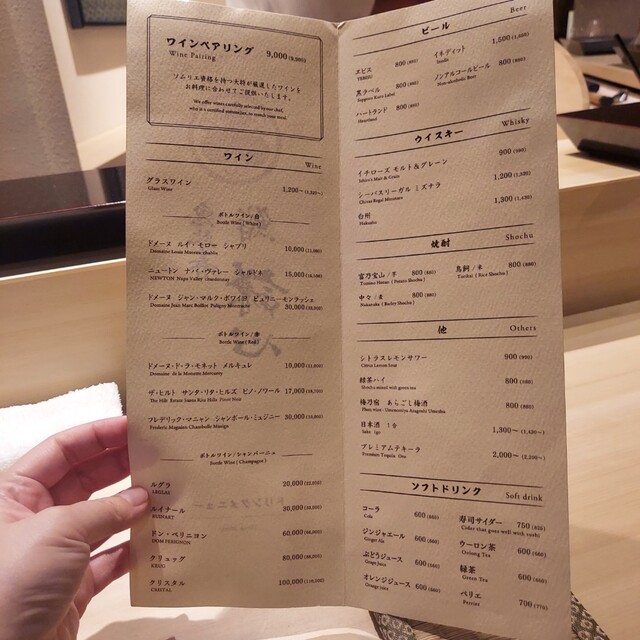 ワインペアリング 9,000(9,900)
Wine Pairing
ソムリエ資格を持つ大将が厳選したワインを
お料理に合わせてご提供いたします。
We offer wines carefully selected by our chef,
who is a certified sommelier, to match your meal.
ワイン Wine
グラスワイン 1,200~
Glass Wine
ボトルワイン/白
Bottle Wine [ White ]
ドメーヌ ルイ・モロー シャブリ 10,000(11,000)
Domaine Louis Moreau chablis
ニュートン ナパ・ヴァレー シャルドネ 15,000
NEWTON Napa Valley chardonnay
ドメーヌ ジャン・マルク・ボワイヨ ピュリニーモンラッシェ
Domaine Jean Marc Boillot Puligny Montrachet 30,000(33,000)
ボトルワイン/赤
Bottle Wine [ Red ]
ドメーヌ・ド・ラ・モネット メルキュレ 10,000(11,000)
Domaine de la Monette Mercurey
ザ・ヒルト サンタ・リタ・ヒルズ ピノ・ノワール 17,000(18,700)
The Hilt Estate Santa Rita Hills Pinot Noir
フレデリック・マニャン シャンボール・ミュジニー 30,000(33,000)
Frederic Magnien Chambolle Musigny
ボトルワイン/シャンパーニュ
Bottle Wine [ Champagne ]
ルグラ 20,000(22,000)
LEGLAS
ルイナール 30,000(33,000)
RUINART
ドン・ペリニヨン 60,000(66,000)
DOM PERIGNON
クリュッグ 80,000(88,000)
KRUG
クリスタル 100,000(110,000)
CRISTAL
ドリンクメニュー
ビール Beer
ヱビス 800(880)
YEBISU
イネディット 1,500
Inedit
黒ラベル 800(880)
Sapporo Kuro Label
ノンアルコールビール 800(880)
Non-alcoholic Beer
ハートランド 800(880)
Heartland
ウイスキー Whisky
イチローズ モルト&グレーン 900(990)
Ichiro's Malt & Grain
シーバスリーガル ミズナラ 1,200(1,320)
Chivas Regal Mizunara
白州 1,300(1,430)
Hakushu
焼酎 Shochu
富乃宝山/芋 800(880)
Tomino Hozan [ Potato Shochu ]
鳥飼/米 800(880)
Torikai [ Rice Shochu ]
中々/麦 800(880)
Nakanaka [ Barley Shochu ]
他 Others
シトラスレモンサワー 900(990)
Citrus Lemon Sour
緑茶ハイ 800(880)
Shochu mixed with green tea
梅乃宿 あらごし梅酒 800(880)
Plum wine - Umenoyiya Aragoshi Umeshu
日本酒 1合 1,300~(1,430~)
Sake 1go
プレミアムテキーラ 2,000~(2,200~)
Premium Tequila
ソフトドリンク Soft drink
コーラ 600(660)
Cola
寿司サイダー 750(825)
Cider that goes well with sushi
ジンジャエール 600(660)
Ginger Ale
ウーロン茶 600(660)
Oolong Tea
ぶどうジュース 600(660)
Grape Juice
緑茶 600(660)
Green Tea
オレンジジュース 600(660)
Orange Juice
ペリエ 700(770)
Perrier